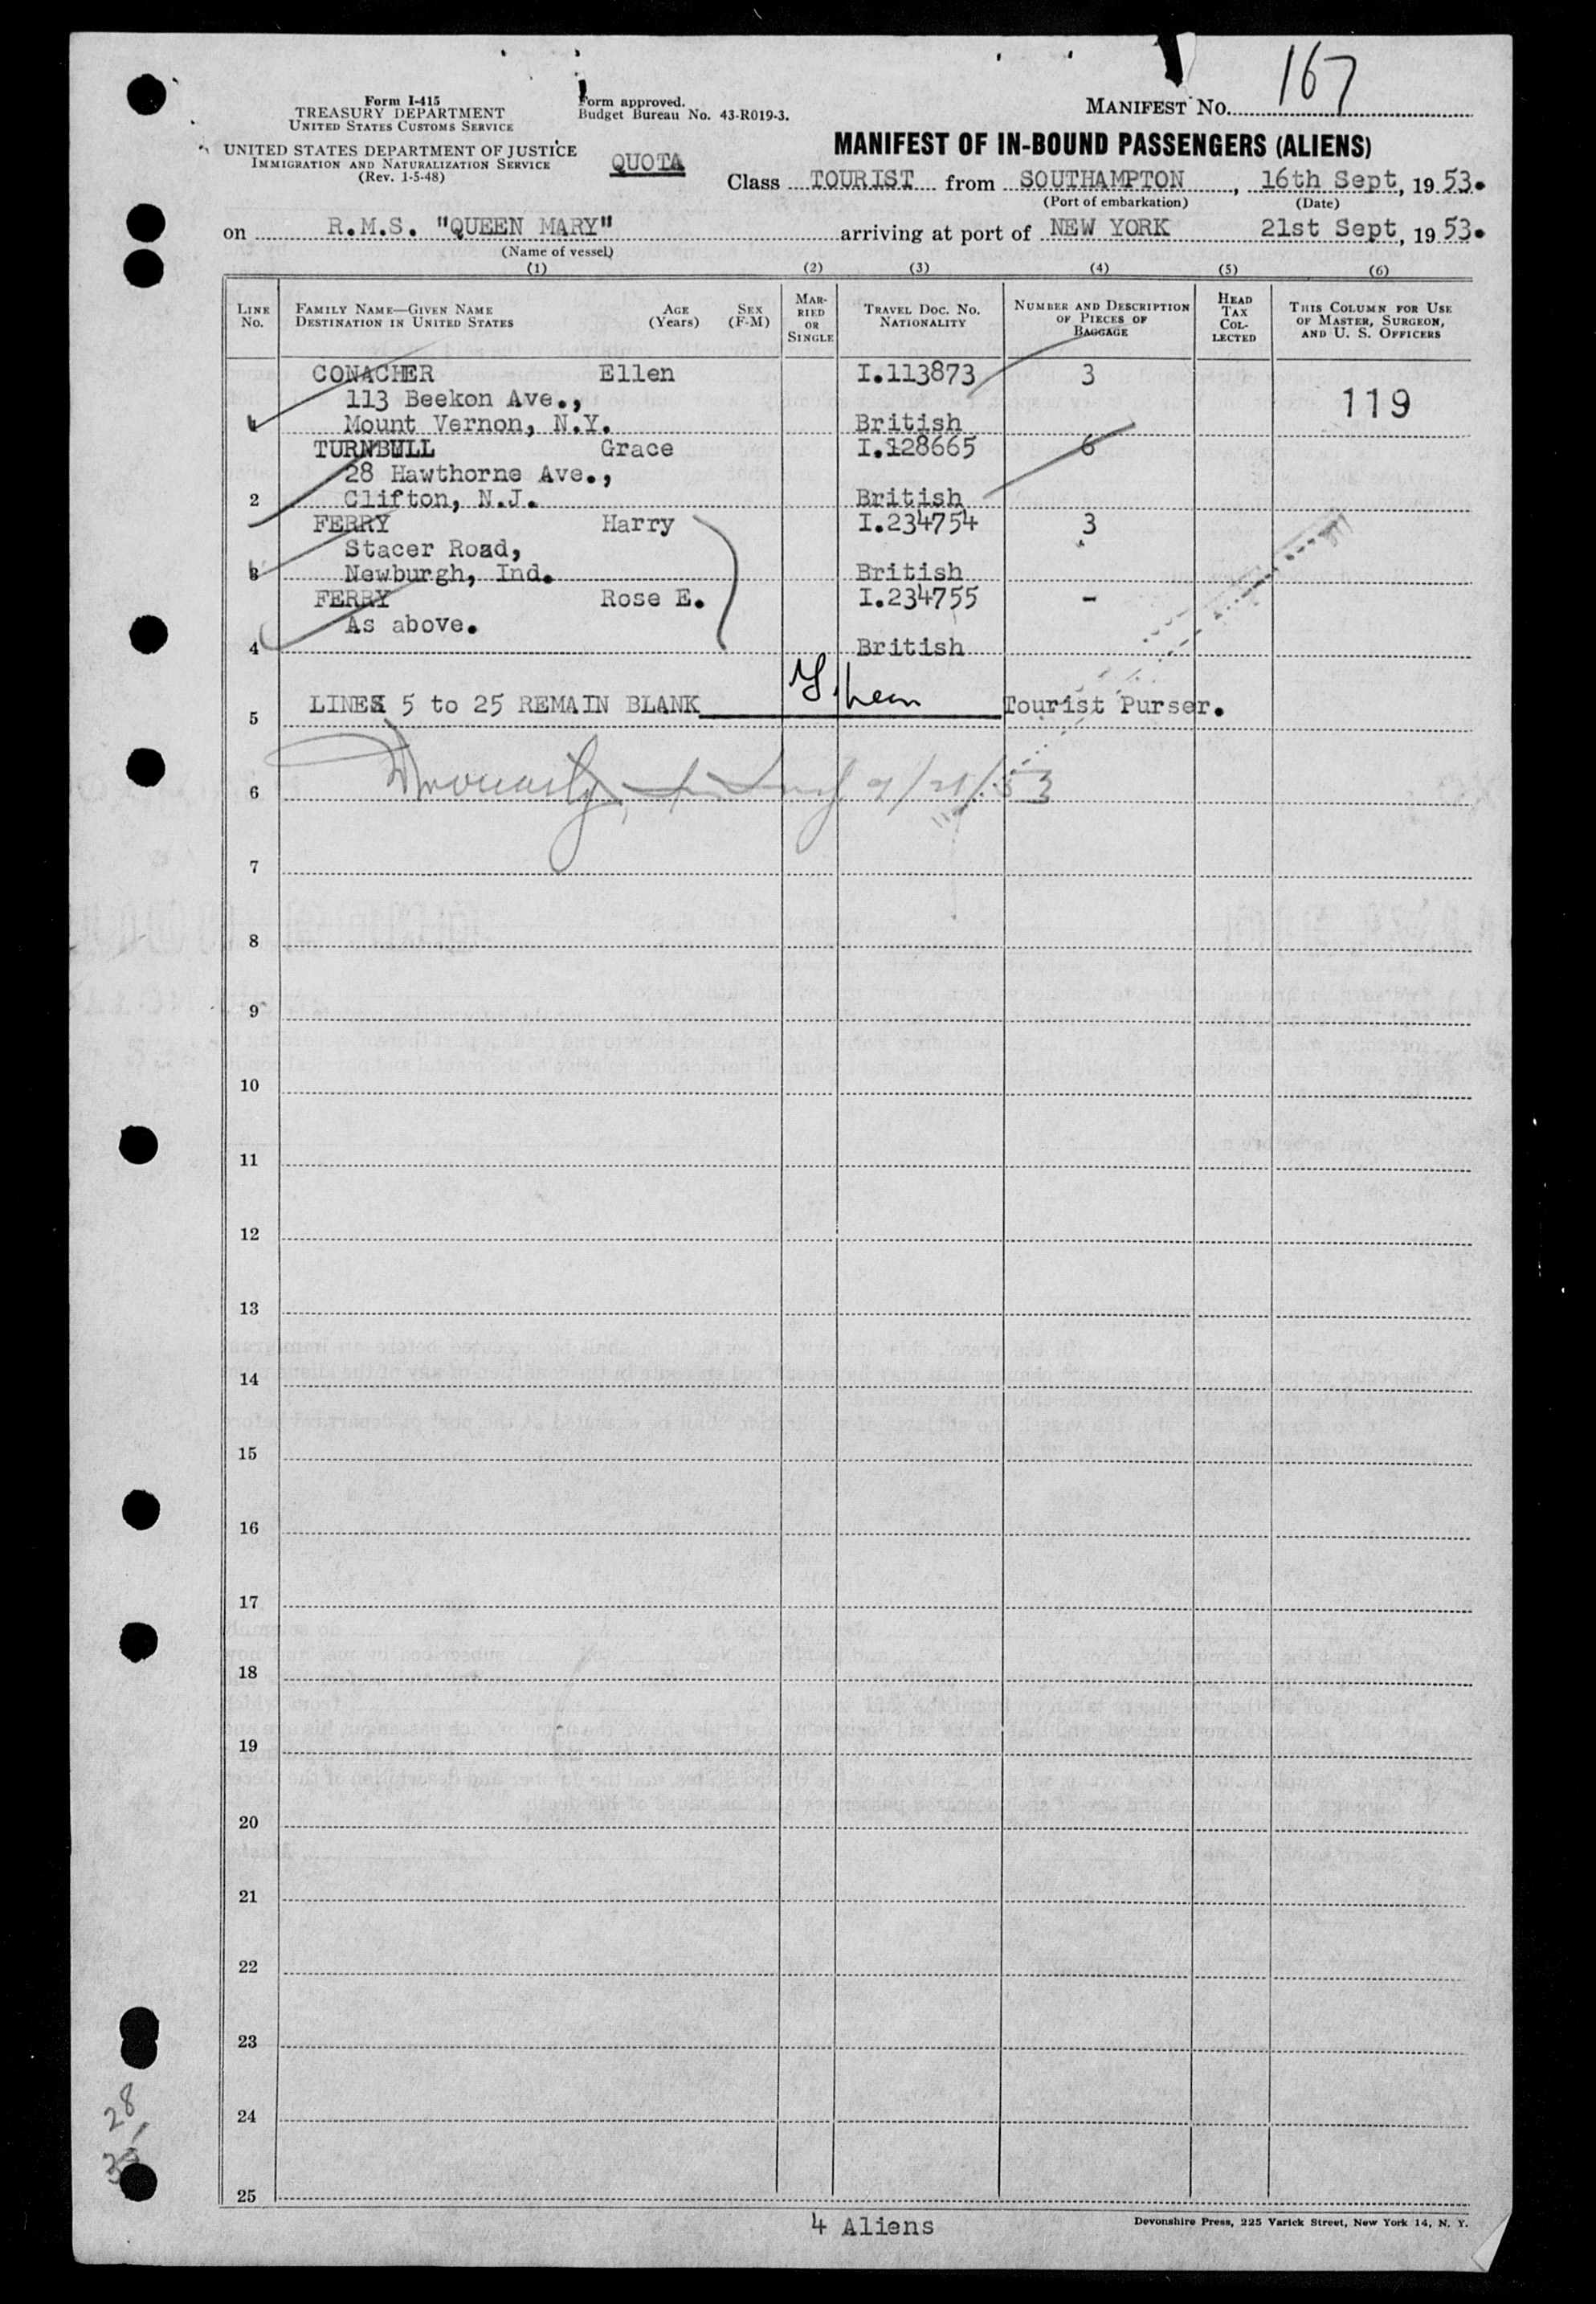 167
Form I-415
TREASURY DEPARTMENT
UNITED STATES CUSTOMS SERVICE
UNITED STATES DEPARTMENT OF JUSTICE
IMMIGRATION AND NATURALIZATION SERVICE
(Rev. 1-5-48)
Form approved.
Budget Bureau No. 43-R019-3.
QUOTA
MANIFEST NO.
MANIFEST OF IN-BOUND PASSENGERS (ALIENS)
Class TOURIST from SOUTHAMPTON, 16th Sept, 19 53.
(Port of embarkation) (Date)
on R.M.S. "QUEEN MARY" arriving at port of NEW YORK 21st Sept, 19 53.
(Name of vessel)
(1) (2) (3) (4) (5) (6)
LINE No. FAMILY NAME—GIVEN NAME DESTINATION IN UNITED STATES AGE (Years) SEX (F-M) MARRIED OR SINGLE TRAVEL DOC. NO. NATIONALITY NUMBER AND DESCRIPTION OF PIECES OF BAGGAGE HEAD TAX COLLECTED THIS COLUMN FOR USE OF MASTER, SURGEON, AND U. S. OFFICERS
CONACHER Ellen I.113873 3
113 Beekon Ave., 119
1 Mount Vernon, N.Y. British
TURNBULL Grace I.128665 6
28 Hawthorne Ave.,
2 Clifton, N.J. British
FERRY Harry I.234754 3
Stacer Road,
3 Newburgh, Ind. British
FERRY Rose E. I.234755 -
As above.
4 British
5 LINES 5 to 25 REMAIN BLANK Tourist Purser.
6 9/21/53
7
8
9
10
11
12
13
14
15
16
17
18
19
20
21
22
23
24
25
28
4 Aliens
Devonshire Press, 225 Varick Street, New York 14, N. Y.